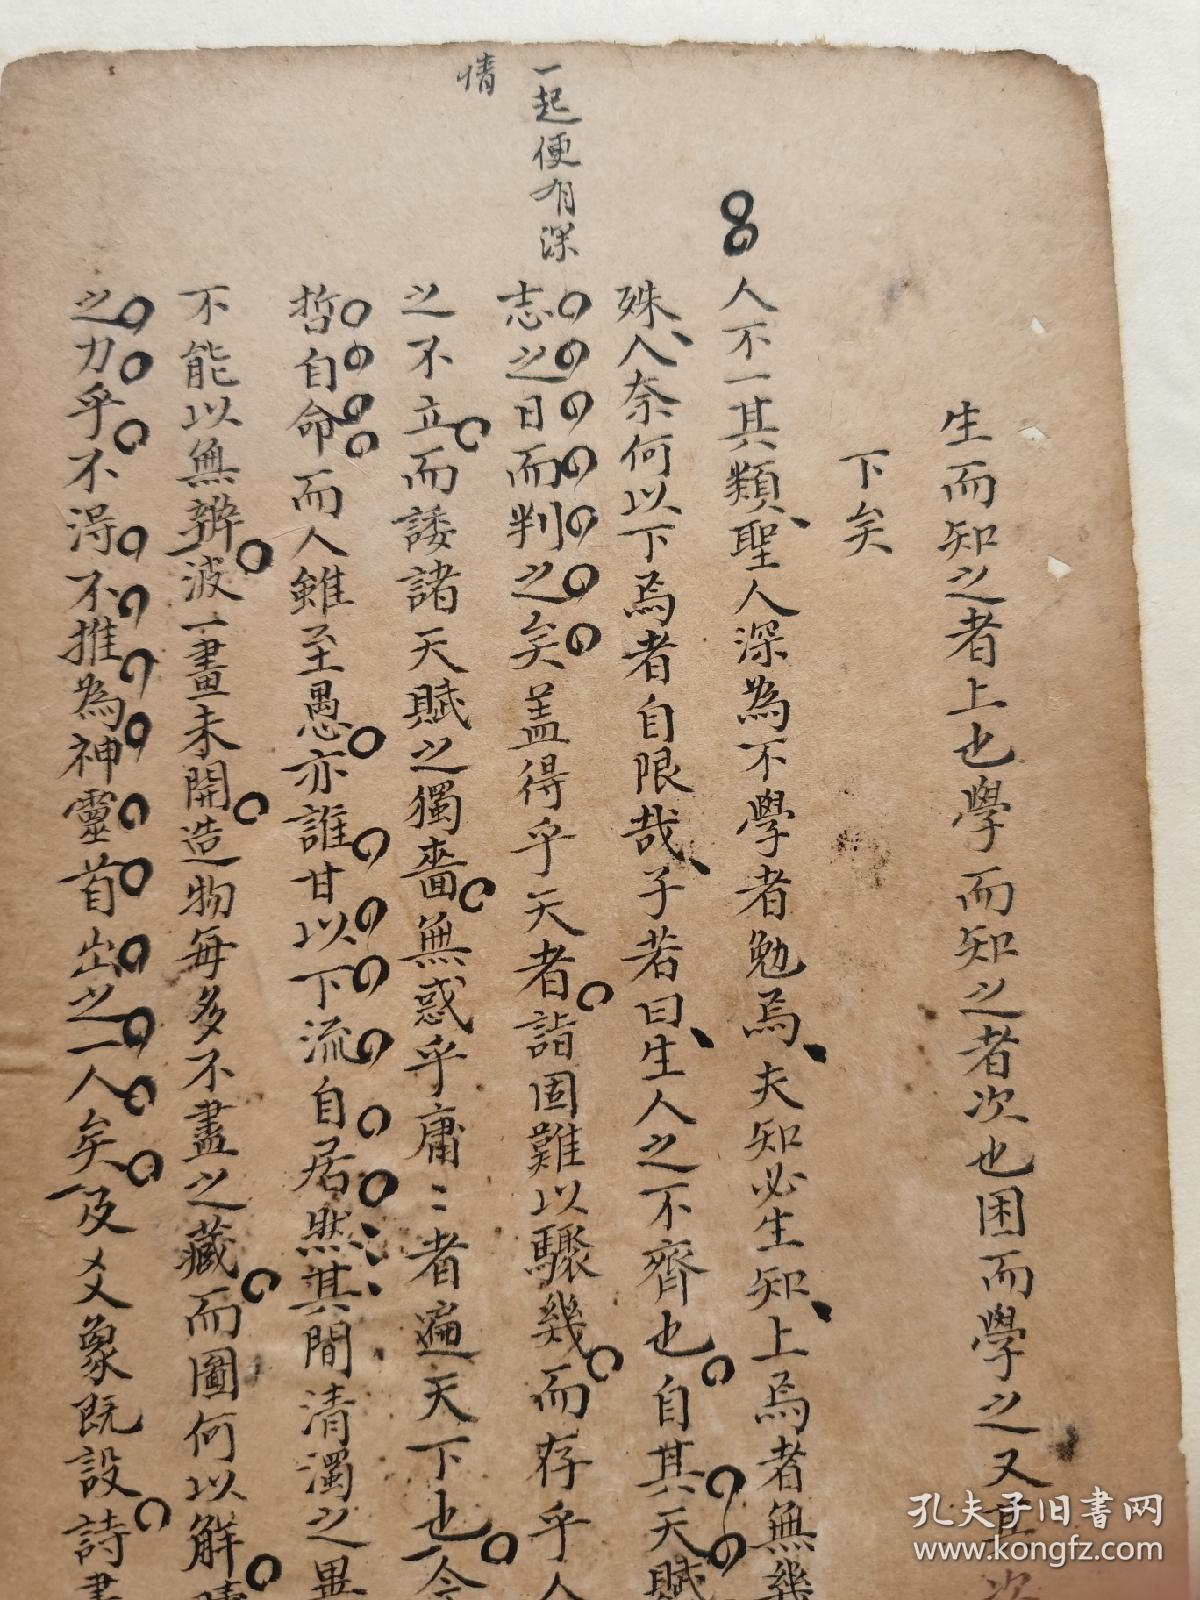 生而知之者上也學而知之者次也困而學之又其次
下矣
人不一其類聖人深為不學者勉焉夫知必生知上焉者無幾
殊人奈何以下焉者自限哉子若曰生人之不齊也自其天賦
志之日而判之矣盖得乎天者詣固難以驟幾而存乎人
之不立而諉諸天賦之獨嗇無惑乎庸〻者遍天下也今
哲自命而人雖至愚亦誰甘以下流自居然其間清濁之異
不能以無辨波一畫未開造物每多不盡之藏而圖何以解
之力乎不得不推為神靈首出之一人矣及爻象既設詩書
一起便有深
情
孔夫子旧书网
www.kongfz.com